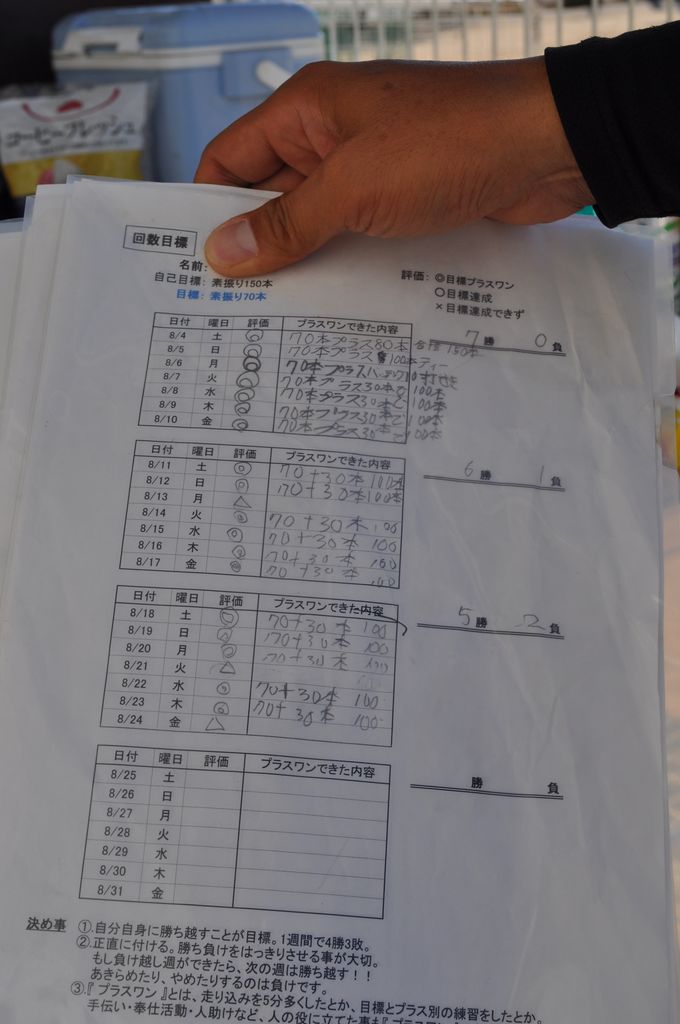 コーヒーフレッシュ
回数目標
名前:
自己目標: 素振り150本
目標: 素振り70本
評価: ◎目標プラスワン
○目標達成
×目標達成できず
日付 曜日 評価 プラスワンできた内容
7勝 0負
8/4 土 ◎ 70本プラス80本 合計150本
8/5 日 ◎ 70本プラス 100本ティー
8/6 月 ◎ 70本プラス
8/7 火 ◎ 70本プラス30本で100本
8/8 水 ◎ 70本プラス30本で100本
8/9 木 ◎ 70本プラス30本で100本
8/10 金 ◎ 70本プラス30本で100本
日付 曜日 評価 プラスワンできた内容
6勝 1負
8/11 土 ◎ 70+30本 100本
8/12 日 ◎ 70+30本100本
8/13 月 △
8/14 火 ◎ 70+30本 100
8/15 水 ◎ 70+30本 100
8/16 木 ◎ 70+30本 100
8/17 金 ◎ 70+30本 100
日付 曜日 評価 プラスワンできた内容
5勝 2負
8/18 土 ◎ 70+30本 100
8/19 日 ◎ 70+30本 100
8/20 月 ◎ 70+30本 100
8/21 火 △
8/22 水 ◎ 70+30本 100
8/23 木 ◎ 70+30本 100
8/24 金 △
日付 曜日 評価 プラスワンできた内容
勝 負
8/25 土
8/26 日
8/27 月
8/28 火
8/29 水
8/30 木
8/31 金
決め事 ①.自分自身に勝ち越すことが目標。1週間で4勝3敗。
②.正直に付ける。勝ち負けをはっきりさせる事が大切。
もし負け越し週ができたら、次の週は勝ち越す！！
あきらめたり、やめたりするのは負けです。
③.『プラスワン』とは、走り込みを5分多くしたとか、目標とプラス別の練習をしたとか。
手伝い・奉仕活動・人助けなど、人の役に立てた事も『プラスワン